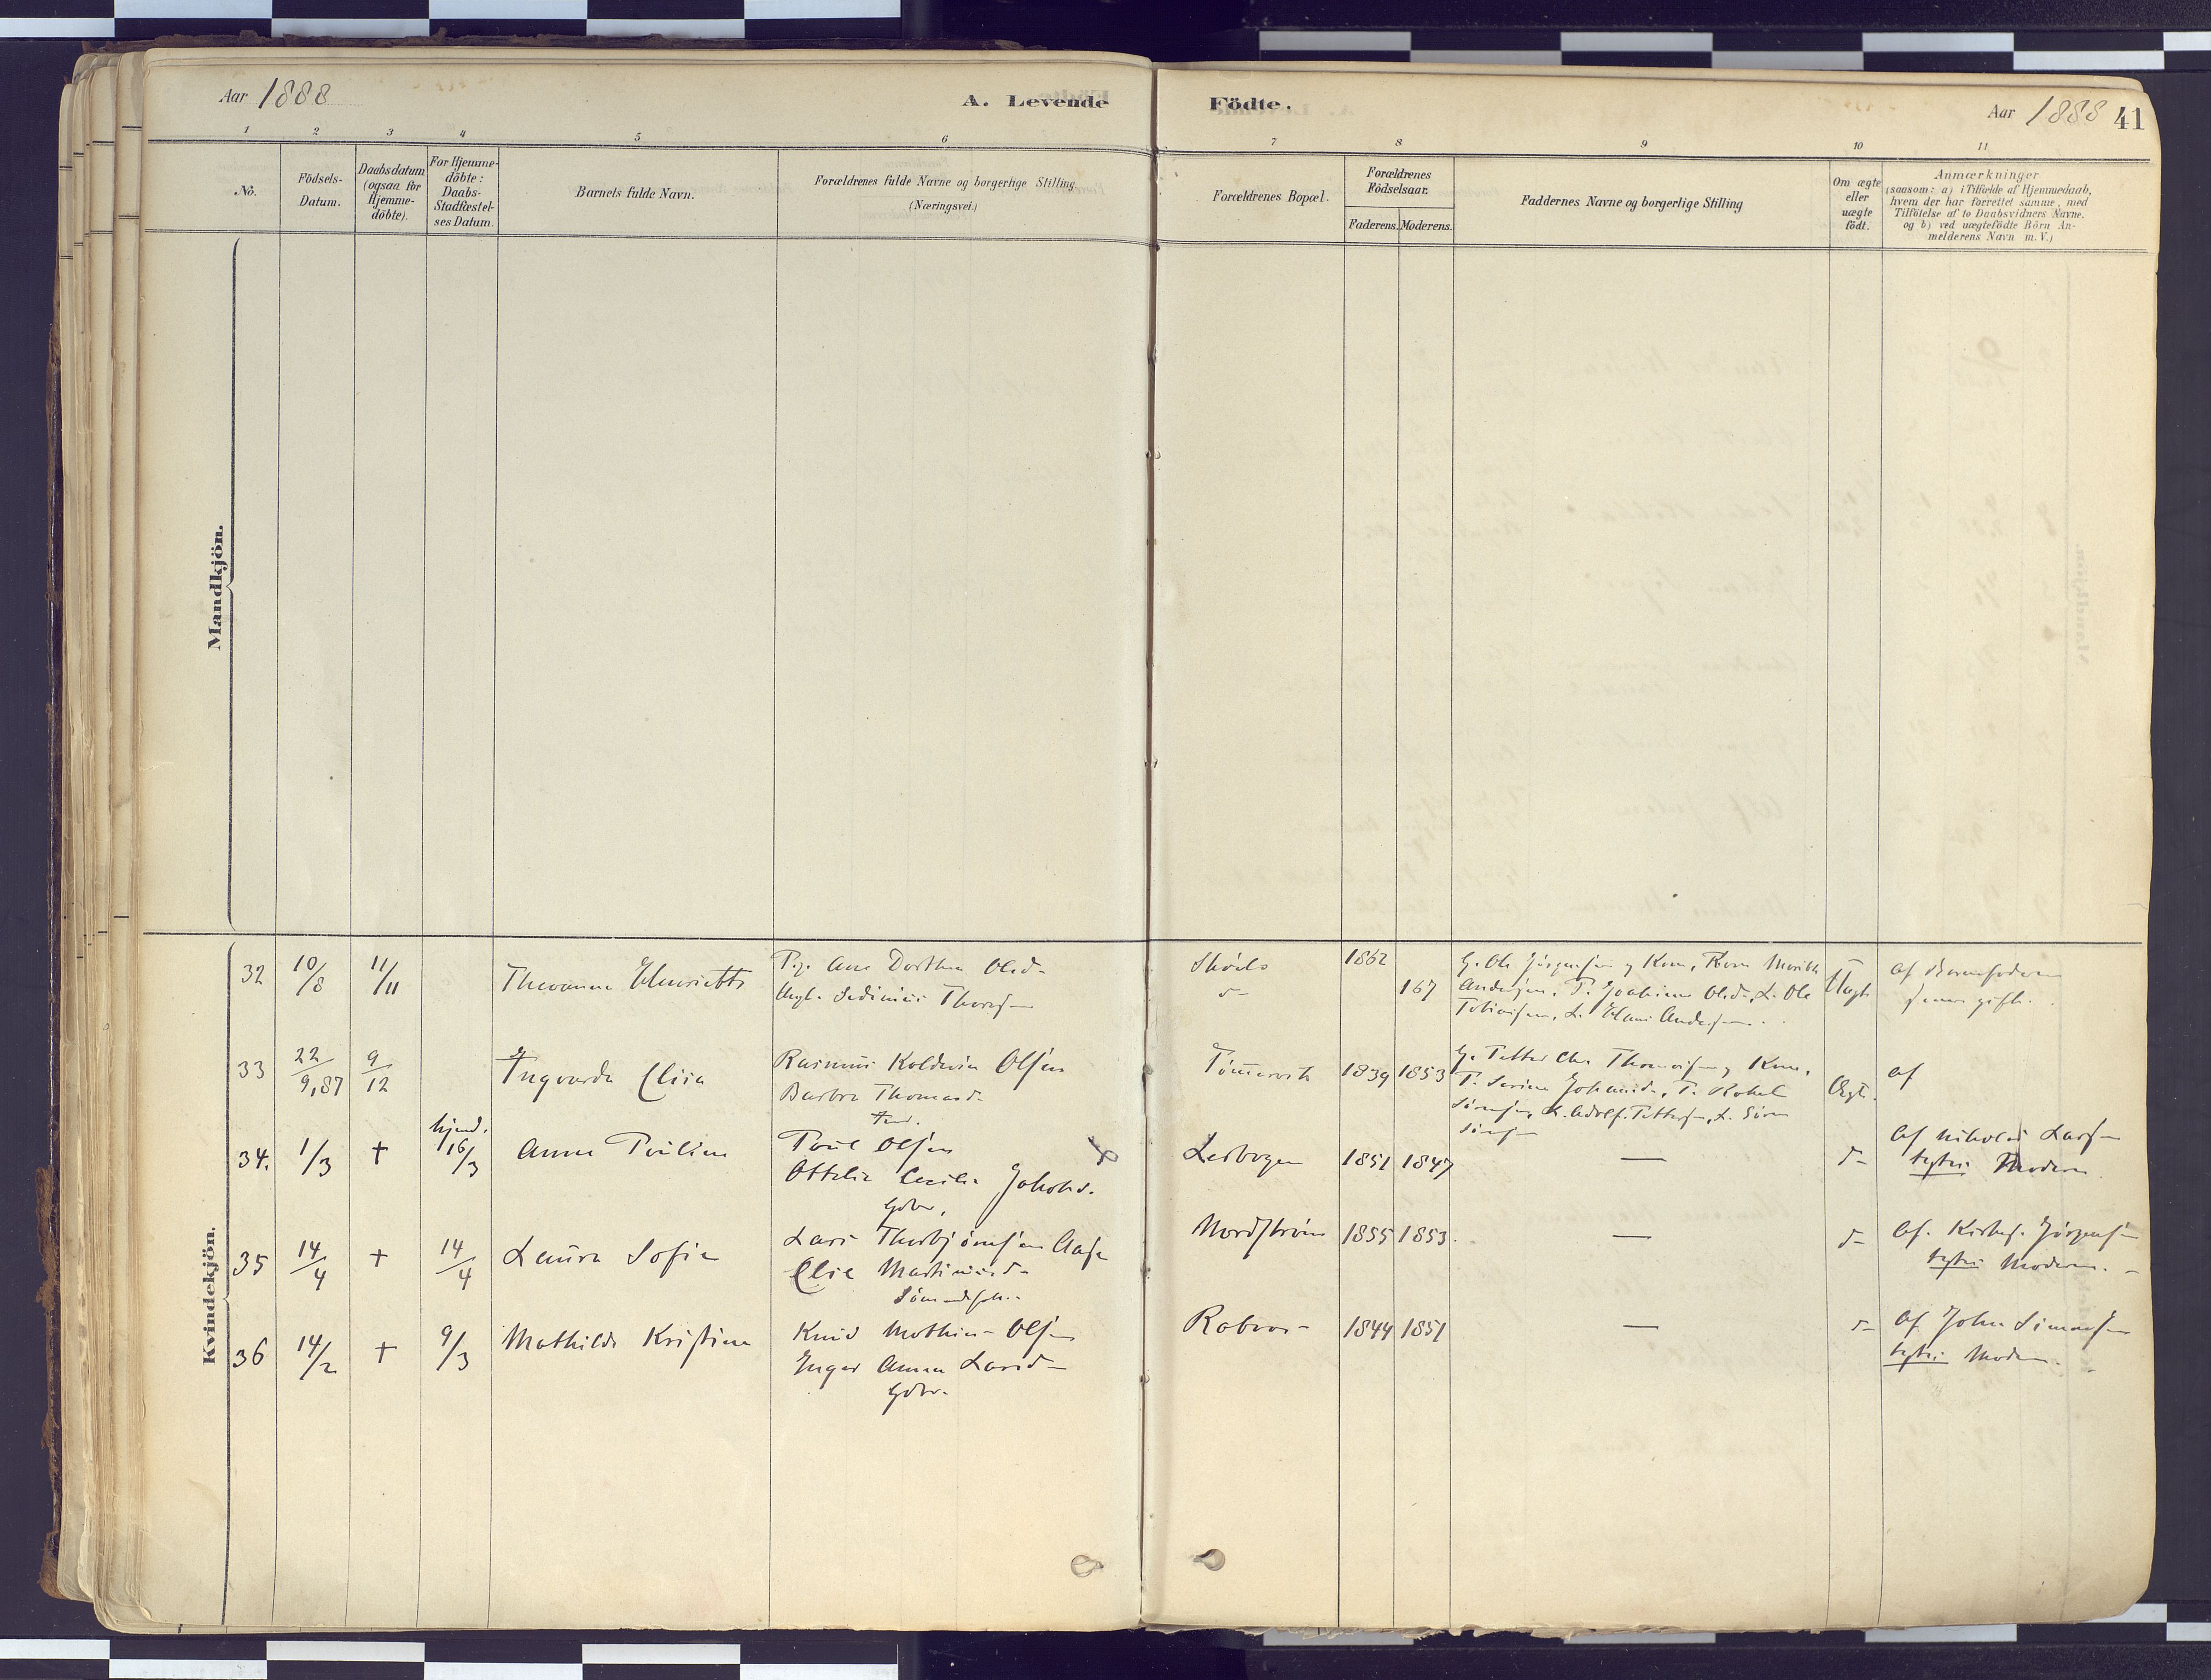 Aar 1888
A. Levende
Födte.
Aar 1888 41
1 2 3 4 5 6 7 8 9 10 11
No.
Födsels-
Datum.
Daabsdatum
(ogsaa for
Hjemme-
döbte).
For Hjemme-
döbte:
Daabs-
Stadfæstel-
ses Datum.
Barnets fulde Navn.
Forældrenes fulde Navne og borgerlige Stilling
(Næringsvei.)
Forældrenes Bopæl.
Forældrenes
Födselsaar.
Faderens. Moderens.
Faddernes Navne og borgerlige Stilling
Om ægte
eller
uægte
födt.
Anmærkninger
(saasom: a) i Tilfælde af Hjemmedaab,
hvem der har forrettet samme, med
Tilföielse af to Daabsvidners Navne.
og b) ved uægtefödte Börn An-
melderens Navn m. V.)
Mandkjön.
Kvindekjön.
32 10/8 11/11 Thevanna Henriette
Ane Dorthea Olsd.
Ungk. Thoresen
1862
167
G. Ole Jørgensen og Kone,
Andersen, P. Joakime Olsd., L. Ole
Tobiasen, L. Hans Andersen.
Uægte
33 22/9,87 9/12 Ingvarda Elisa
Rasmus Koldevin Olsen
Barbra Thomasd.
1839 1853
G. Petter Chr. Thomassen og Kone,
P. Serine Johannsd., P. Rakel
L. Adolf Pettersen, L. Sören
Ægte.
af
34. 1/3 † hjemd. 16/3 Anna Pauline
Poul Olsen
Ottelie Cecilie Jakobsd.
Gbr.
Lesbogen 1851 1847 — d-
Af Nikolai Larsen
Moderen.
35 14/4 † 14/4 Laura Sofie
Lars Thorbjörnsen Aase
Elie Martinusd.
Nordström 1855 1853. — d-
Af Jörgensen
Moderen.
36 14/2 † 9/3 Mathilde Kristine
Knud Mathias Olsen
Inger Anna Larsd.
Gbr.
1844 1851 — d-
Af John Simonsen
Moderen.